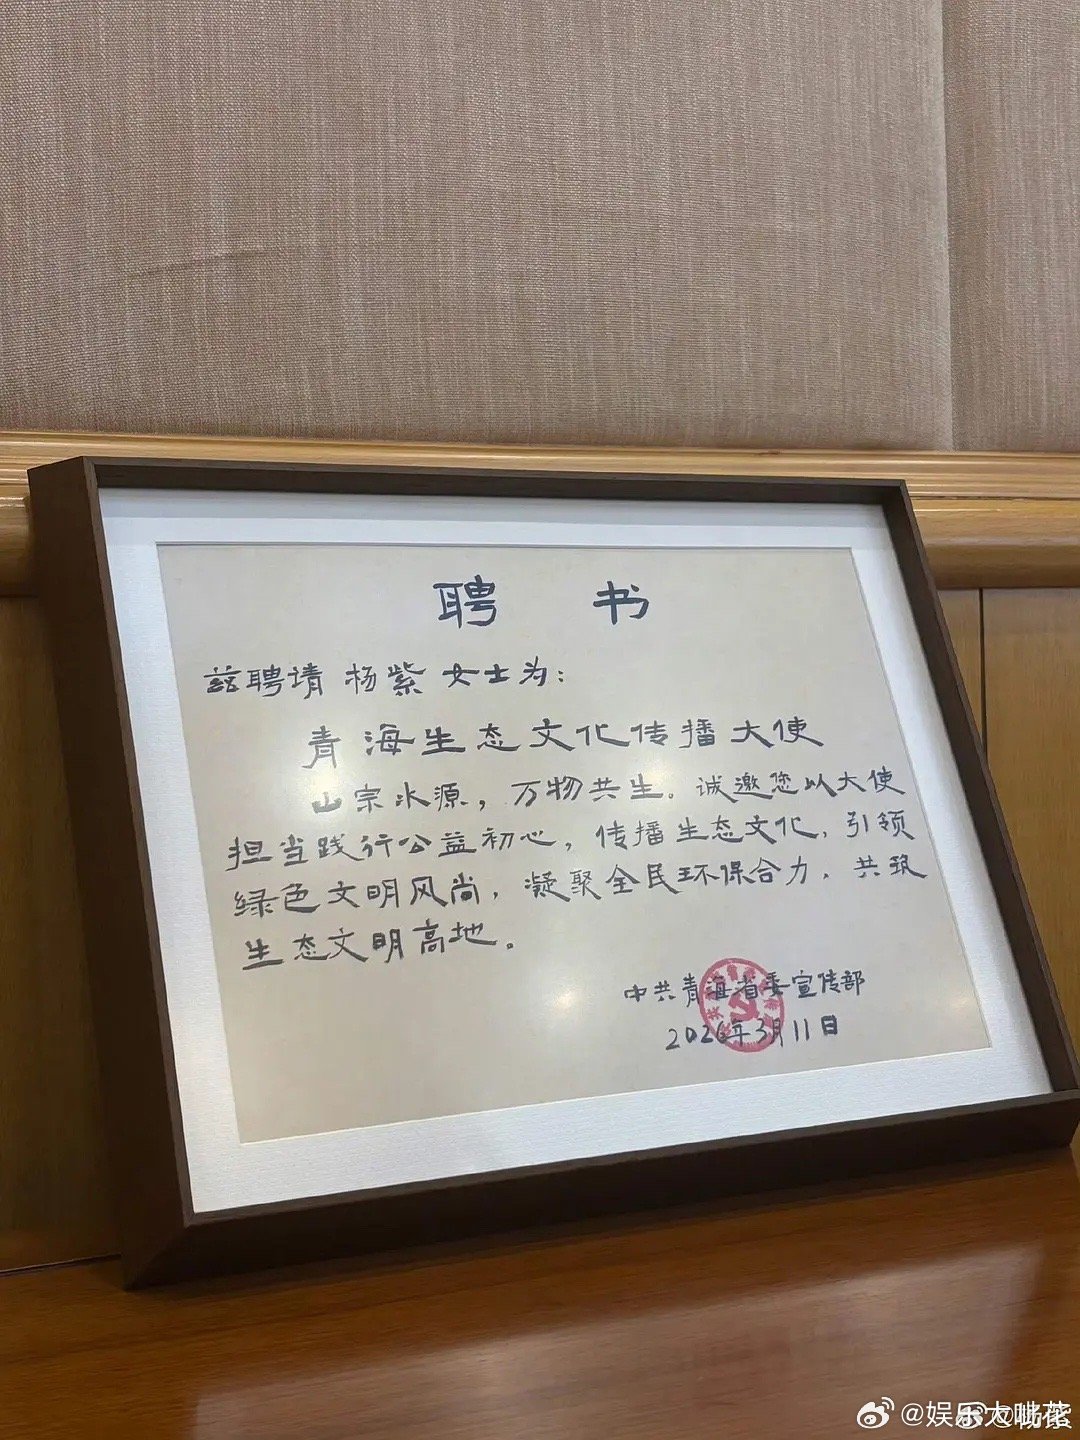 聘 书
兹聘请 杨紫 女士为：
青海生态文化传播大使
山宗水源，万物共生。诚邀您以大使
担当践行公益初心，传播生态文化，引领
绿色文明风尚，凝聚全民环保合力，共筑
生态文明高地。
中共青海省委宣传部
2026年3月11日
@娱乐大